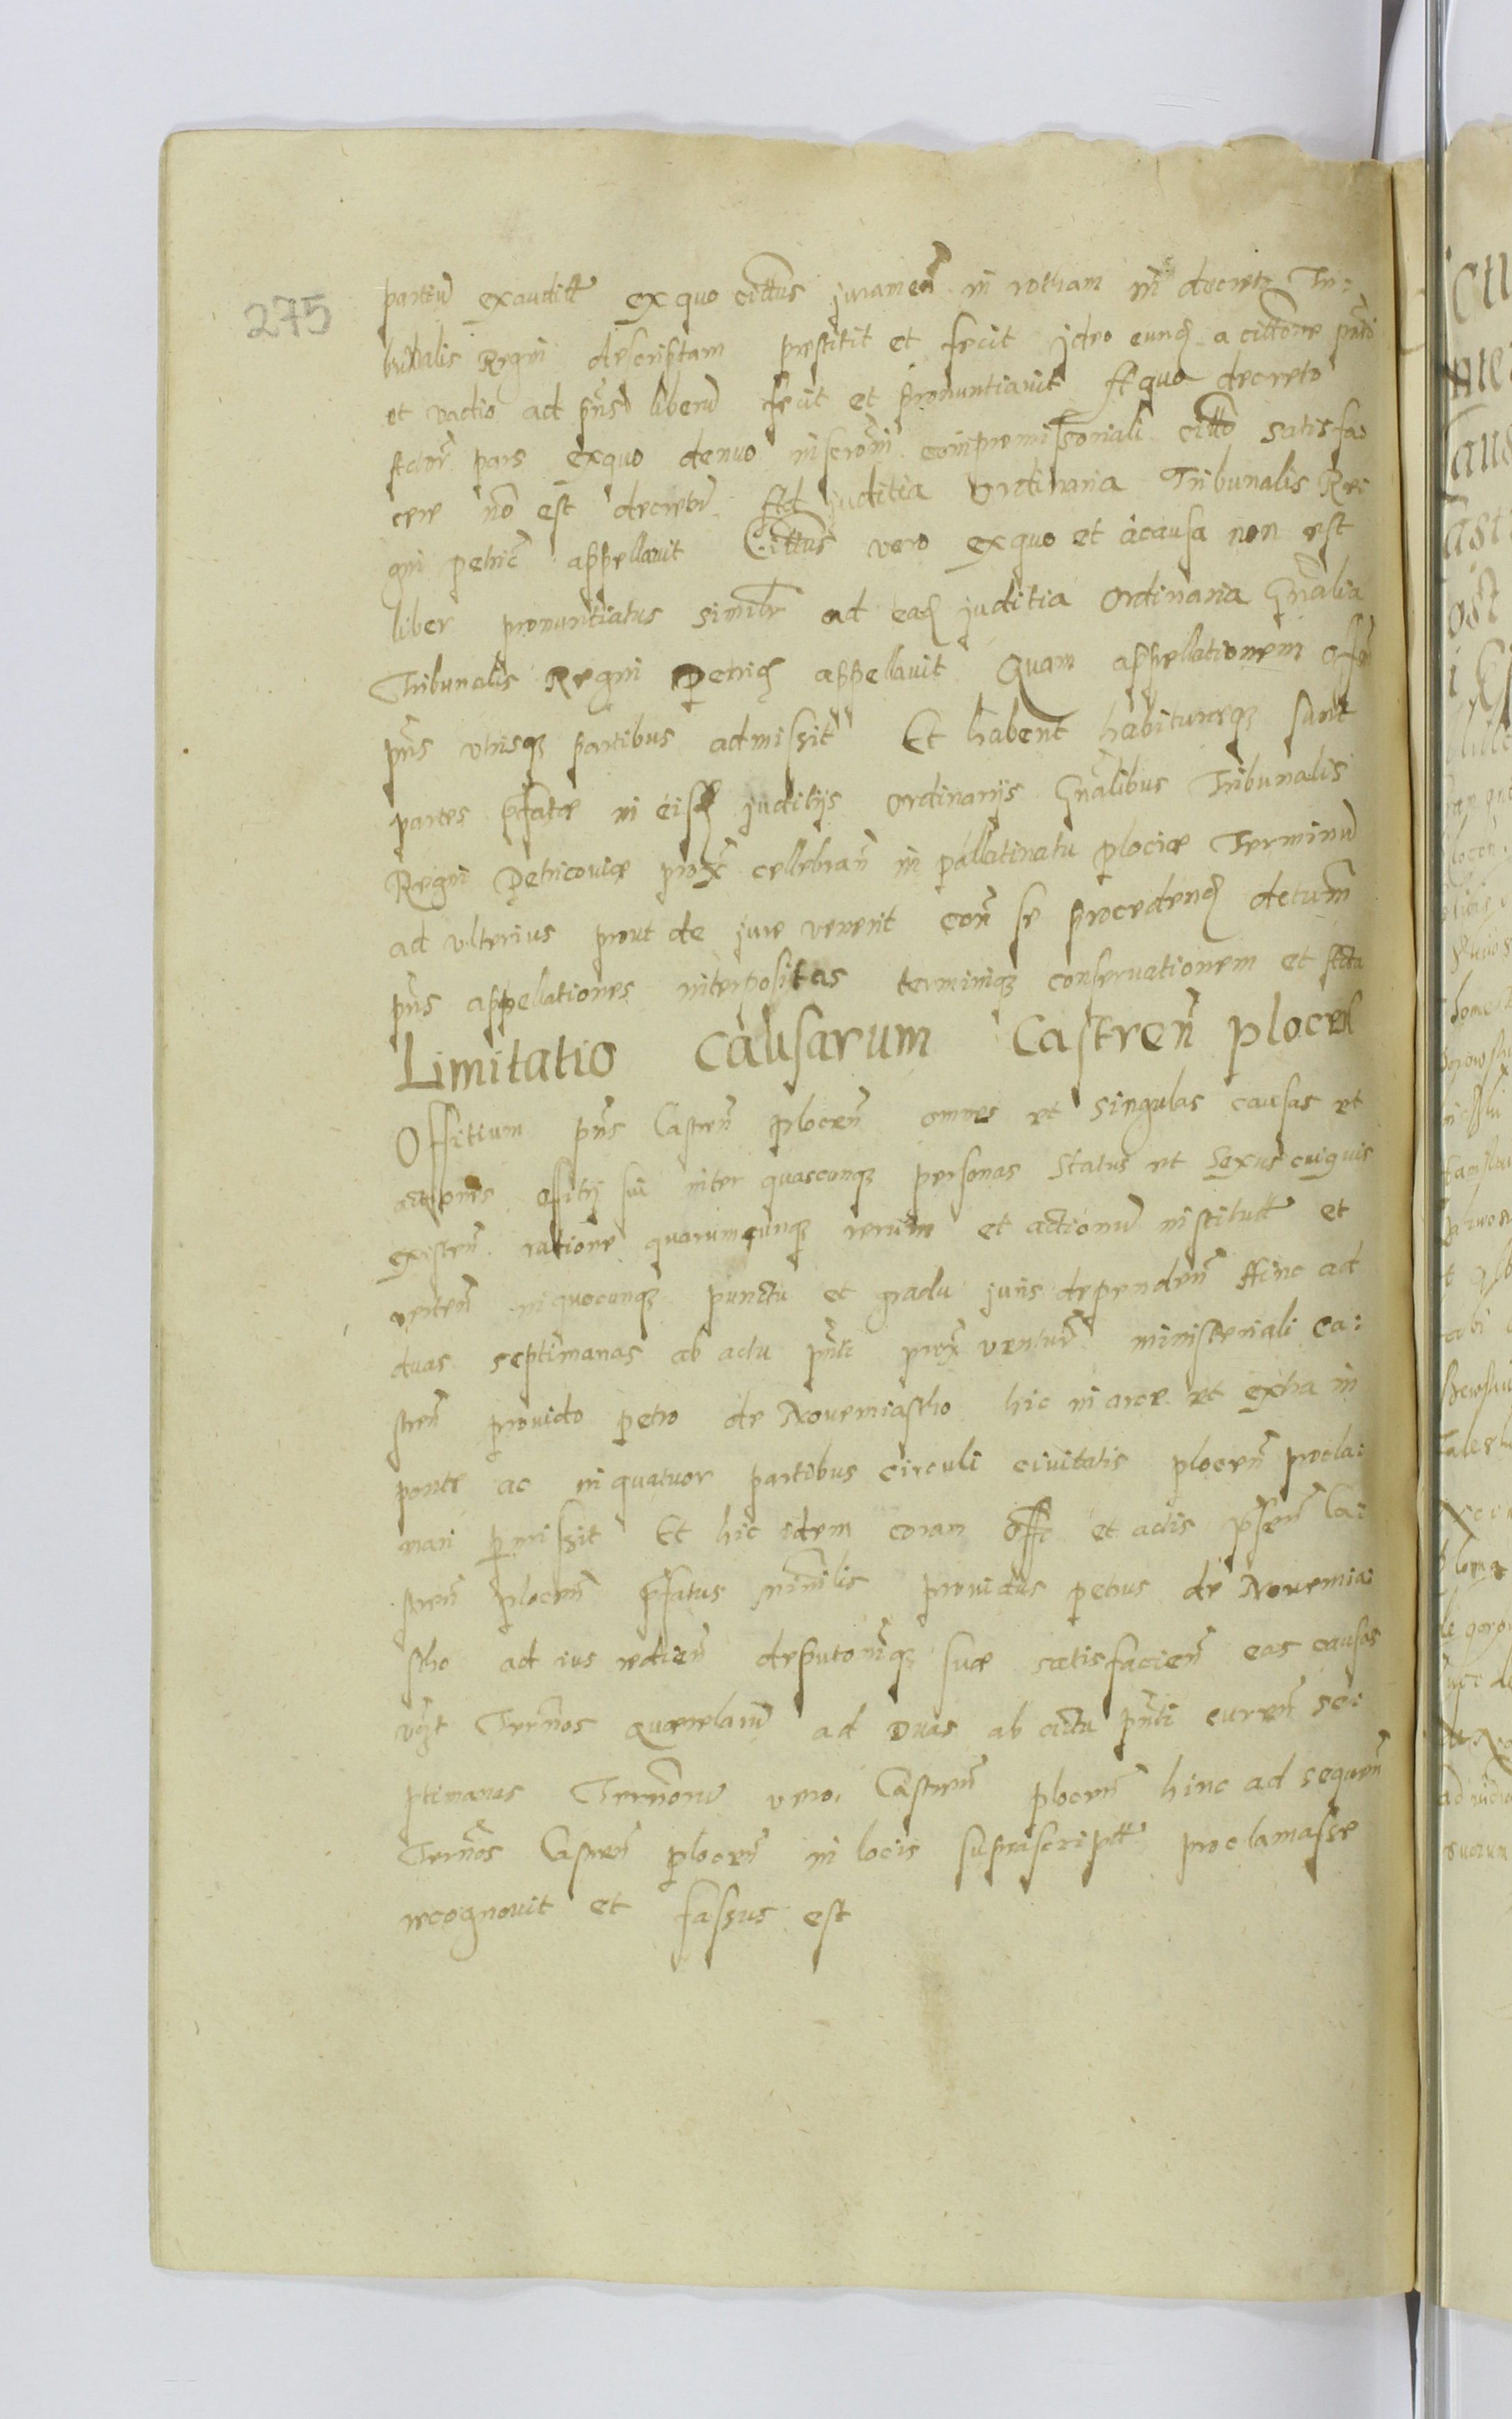 275
partiu exauditt ex quo cittus juramen in rotham in decreto Tri:
bunalis Regni descriptam prestitit et fecit jdeo eund a cittone pnti
et vadio ad pns liberu fecit et pronuntiavit A quo decreto
Actor pars exquo denuo compromissoriali citto satisfa:
cere no est decretu Ad juditia Ordinaria Tribunalis Re:
gni petric appellavit Cittus vero exquo et acausa non est
liber pronuntiatus simitr ad ead juditia Ordinaria Gnalia
Tribunalis Regni Petric appellavit Quam appellationem Offm
pns utrisq partibus admissit Et habent habitureq sunt
partes pfatæ in eisd juditijs ordinarijs Gnalibus Tribunalis
Regni Petricoviæ prox cellebran in pallatinatu plociæ Terminu
ad ulterius prout de jure venerit con se procedend detum
pns appellationes interpositas terminiq conservationem et Acta
Limitatio Causarum Castren plocen
Offitium pns Castren plocen omnes et singulas causas et
actiones offitij sui inter quascunq personas status et Sexus cuiquis
existen ratione quarumcunq rerum et actionu institutt et
verten inquocunq punctu et gradu juris dependen Hinc ad
duas septimanas ab actu pnti prox ventur ministeriali ca:
stren provido petro de Novemiastho hic in arce et extra in
ponte ac in quatuor partibus circuli civitatis plocen procla:
mari pmissit Et hic idem coram Offo et actis psen Ca:
stren plocen pfatus minilis providus petrus de Novemia:
stho ad ius redien deputoniq suæ satisfacien eas causas
vzt Termos quærelaru ad Duas ab actu pnti curen se:
ptimanas Terminoru vero Castren plocen hinc ad sequen
Termos Castren plocen in locis suprascriptt proclamasse
recognovit et fassus est